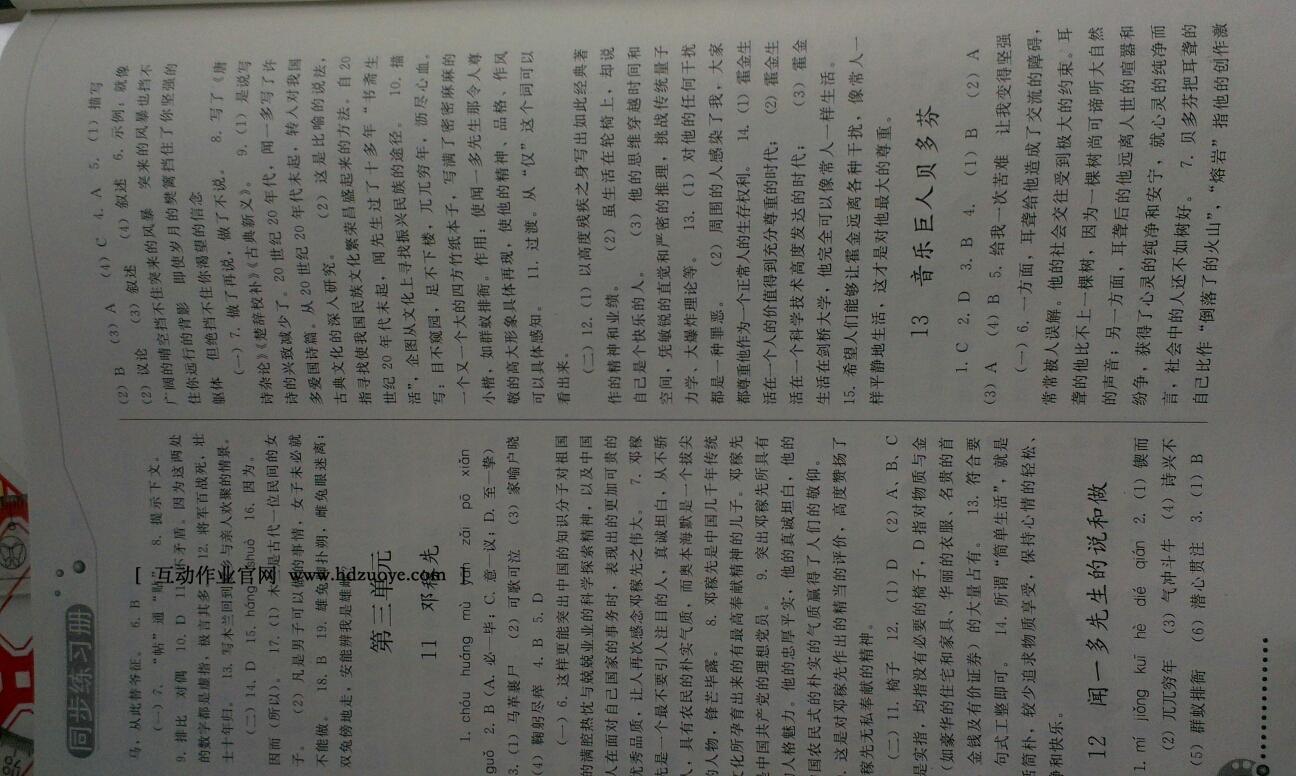 同步练习册
马，从此替爷征。 6. B
(一) 7. "帖"通"贴"。 8. 提示下文。
9. 排比 对偶 10. D 11. 不矛盾。因为这两处
的数字都是虚指，极言其多。 12. 将军百战死，壮
士十年归。 13. 写木兰回到故乡与亲人欢聚的情景。
(二) 14. D 15. háng shuò 16. 因为。
因而（所以）。 17. (1) 木兰是古代一位民间的女
子。 (2) 凡是男子可以做的事情，女子未必就
不能做。 18. B 19. 雄兔脚扑朔，雌兔眼迷离；
双兔傍地走，安能辨我是雄雌？
[ 互动作业官网 www.hdzuoye.com ]
第三单元
11 邓稼先
1. chóu huáng mù yùn zǎi pō xiān
guō 2. B（A. 必—毕；C. 意—议；D. 至—挚）
3. (1) 马革裹尸 (2) 可歌可泣 (3) 家喻户晓
(4) 鞠躬尽瘁 4. B 5. D
(一) 6. 这样更能突出中国的知识分子对祖国
的满腔热忱与兢兢业业的科学探索精神，以及中国
人在面对自己国家的事务时，表现出的更加可贵的
优秀品质，让人再次感念邓稼先之伟大。 7. 邓稼
先是一个最不要引人注目的人，真诚坦白，从不骄
人，具有农民的朴实气质，而奥本海默是一个拔尖
的人物，锋芒毕露。 8. 邓稼先是中国几千年传统
文化所孕育出来的有最高奉献精神的儿子。邓稼先
是中国共产党的理想党员。 9. 突出邓稼先所具有
的人格魅力。他的忠厚平实，他的真诚坦白，他的
中国农民式的朴实的气质赢得了人们的敬仰。
. 这是对邓稼先作出的精当的评价，高度赞扬了
稼先无私奉献的精神。
(二) 11. 椅子 12. (1) D (2) A、B、C
是实指，均指没有必要的椅子，D 指对物质与金
（如豪华的住宅和家具、华丽的衣服、名贵的首
金钱及有价证券）的大量占有。 13. 符合要
句式工整即可。 14. 所谓"简单生活"，就是
活简朴，较少追求物质享受，保持心情的轻松、
静和快乐。
12 闻一多先生的说和做
1. mí jiǒng kuǐ hè dié qián 2. (1) 锲而
(2) 兀兀穷年 (3) 气冲斗牛 (4) 诗兴不
(5) 群蚁排衙 (6) 潜心贯注 3. (1) B
(2) B (3) A (4) C 4. A 5. (1) 描写
(2) 议论 (3) 叙述 (4) 叙述 6. 示例：就像
广阔的晴空挡不住突来的风暴 突来的风暴也挡不
住你远行的背影 即使岁月的樊篱挡住了你坚强的
躯体 但绝挡不住你渴望的信念
(一) 7. 做了再说，做了不说。 8. 写了《唐
诗杂论》《楚辞校补》《古典新义》。 9. (1) 是说写
诗的兴致减少了。20 世纪 20 年代，闻一多写了许
多爱国诗篇。从 20 世纪 20 年代末起，转入对我国
古典文化的深入研究。 (2) 这是比喻的说法，
指寻找使我国民族文化繁荣昌盛起来的方法。自 20
世纪 20 年代末起，闻先生过了十多年"书斋生
活"，企图从文化上寻找振兴民族的途径。 10. 描
写：目不窥园，足不下楼，兀兀穷年，沥尽心血。
一个又一个大的四方竹纸本子，写满了密密麻麻的
小楷，如群蚁排衙。作用：使闻一多先生那令人尊
敬的高大形象具体再现，使他的精神、品格、作风
可以具体感知。 11. 过渡。从"仅"这个词可以
看出来。
(二) 12. (1) 以高度残疾之身写出如此经典著
作的精神和业绩。 (2) 虽生活在轮椅上，却说
自己是个快乐的人。 (3) 他的思维穿越时间和
空间，凭敏锐的直觉和严密的推理，挑战传统量子
力学、大爆炸理论等。 13. (1) 对他的任何干扰
都是一种罪恶。 (2) 周围的人感染了我，大家
都尊重他作为一个正常人的生存权利。 14. (1) 霍金生
活在一个人的价值得到充分尊重的时代； (2) 霍金生
活在一个科学技术高度发达的时代； (3) 霍金
生活在剑桥大学，他完全可以像常人一样生活。
15. 希望人们能够让霍金远离各种干扰，像常人一
样平静地生活，这才是对他最大的尊重。
13 音乐巨人贝多芬
1. C 2. D 3. B 4. (1) B (2) A
(3) A (4) B 5. 给我一次苦难 让我变得坚强
(一) 6. 一方面，耳聋给他造成了交流的障碍，
常常被人误解。他的社会交往受到极大的约束。耳
聋的他比不上一棵树，因为一棵树尚可谛听大自然
的声音；另一方面，耳聋后的他远离人世的喧嚣和
纷争，获得了心灵的纯净和安宁，就心灵的纯净而
言，社会中的人还不如树好。 7. 贝多芬把耳聋的
自己比作"倒落了的火山"，"熔岩"指他的创作激